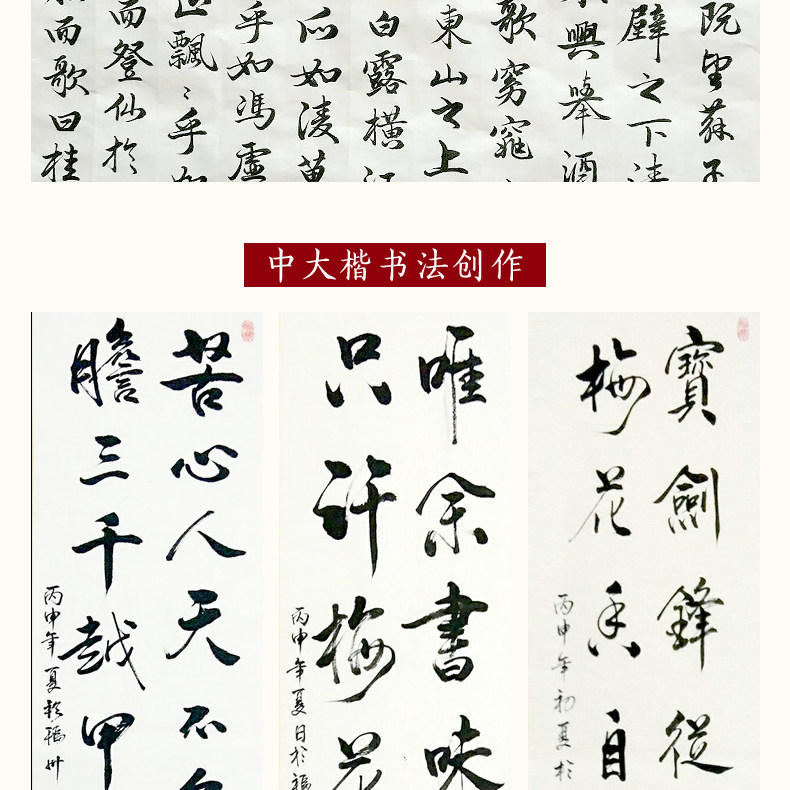 既望蘇子
壁之下清
興舉酒
歌窈窕
東山之上
白露橫江
所如凌萬
乎如馮虛
止飄〻乎如
而登仙於
而歌曰桂
中大楷书法创作
苦心人天不
膽三千越甲
丙申年夏於福州
唯余書味
只許梅花
丙申年夏日於福
寶劍鋒從
梅花香自
丙申年初夏於